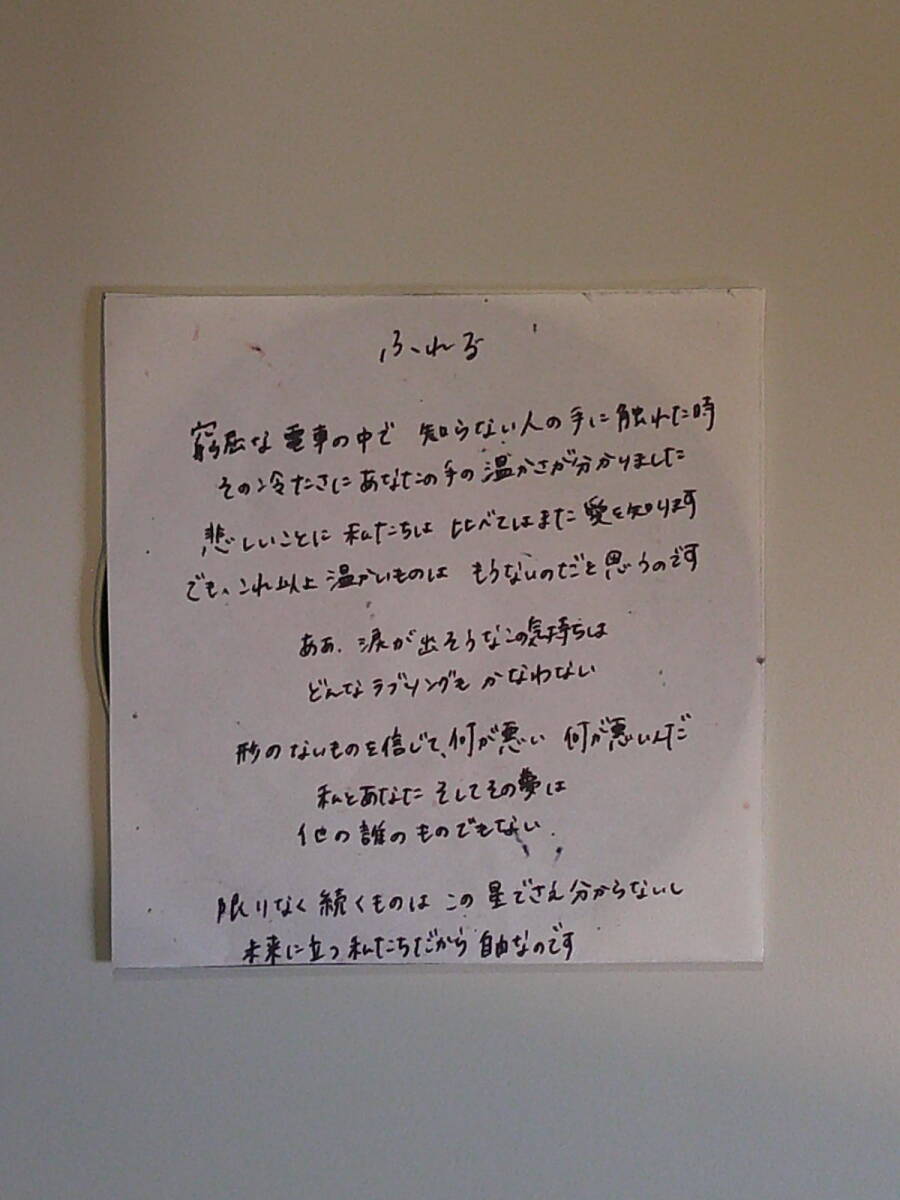 ふれる
窮屈な電車の中で 知らない人の手に触れた時
その冷たさに あなたの手の温かさが分かりました
悲しいことに 私たちは 比べてはまた愛を知ります
でも、これ以上 温かいものは もうないのだと思うのです
ああ、涙が出そうなこの気持ちは
どんなラブソングも かなわない
形のないものを信じて、何が悪い 何が悪いんだ
私とあなた そしてその夢は
他の誰のものでもない
限りなく続くものは この星でさえ分からないし
未来に立つ私たちだから 自由なのです